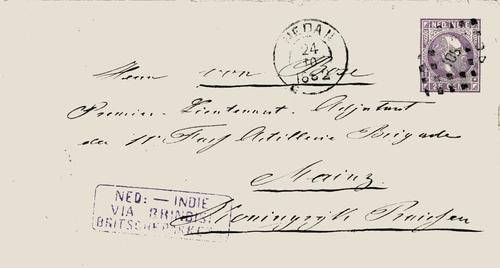 NED. INDIE
MEDAN
24
10
1882
Herrn von
Premier-Lieutenant Adjutant
der 11 Fuss Artillerie Brigade
Mainz.
NED: — INDIE
VIA BRINDISI
BRITSCHE PAKKET
Koningryk Pruissen